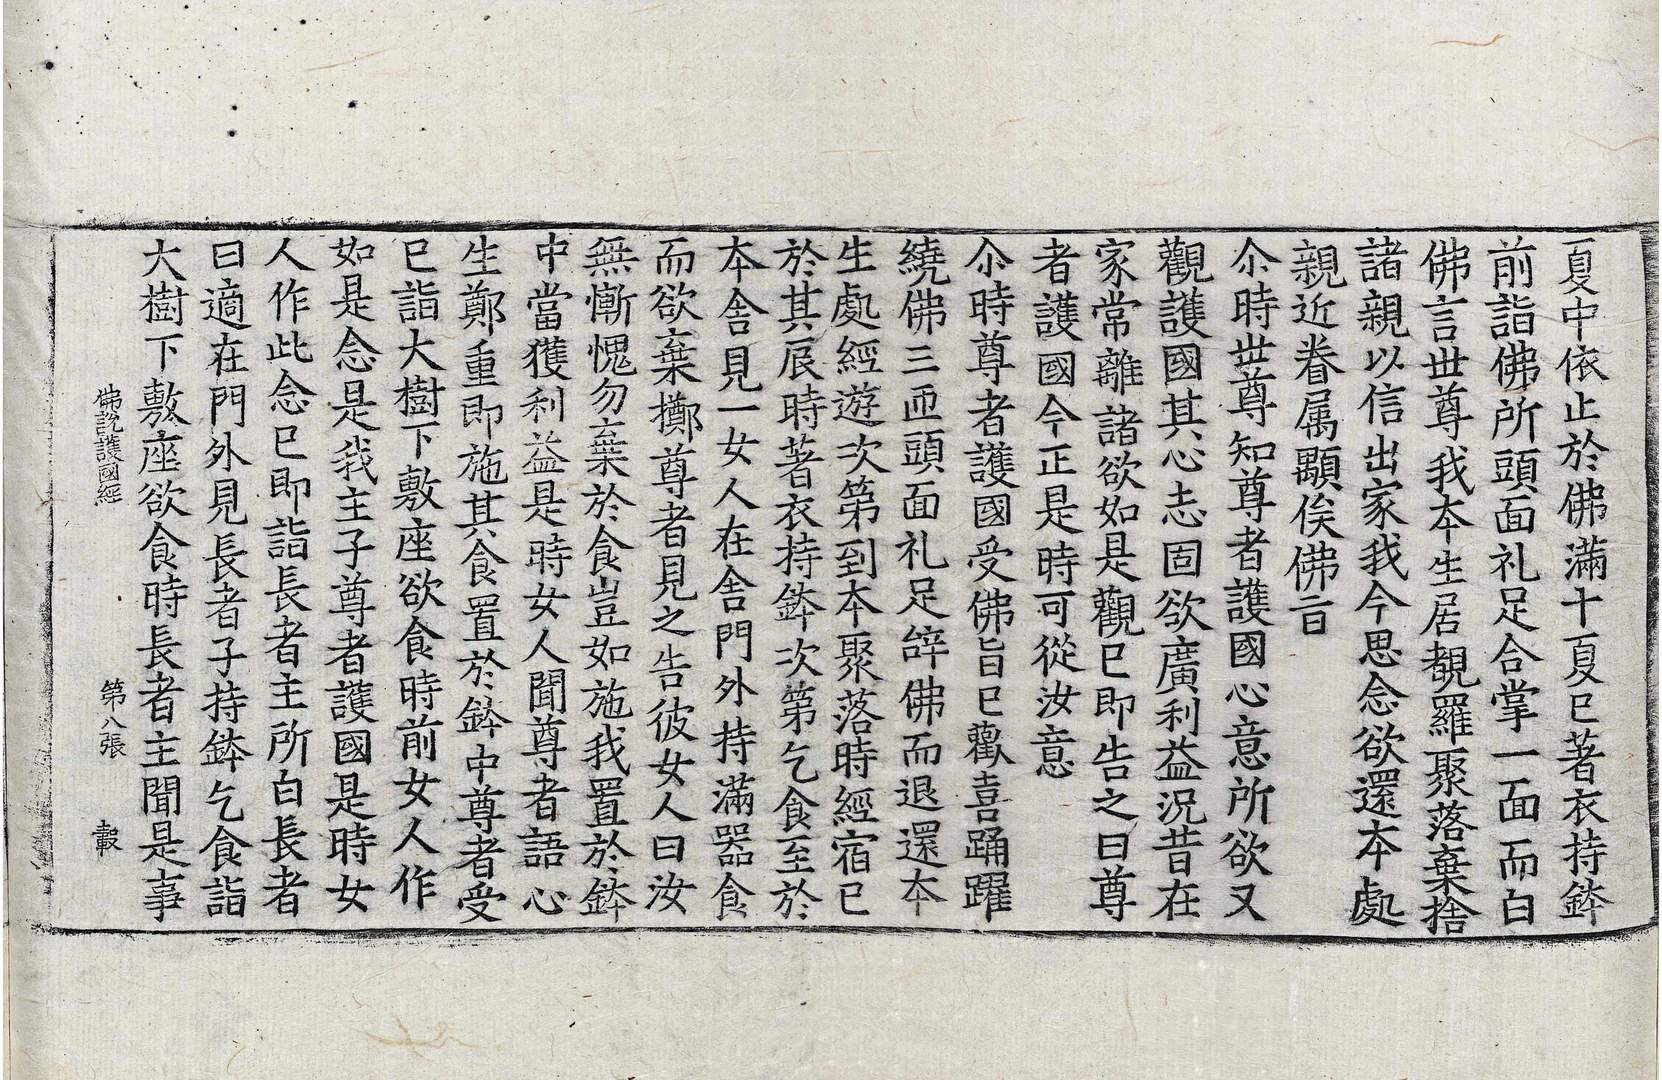 夏中依止於佛滿十夏已著衣持鉢
前詣佛所頭面礼足合掌一面而白
佛言世尊我本生居覩羅聚落棄捨
諸親以信出家我今思念欲還本處
親近眷属顯俟佛旨
尒時世尊知尊者護國心意所欲又
觀護國其心志固欲廣利益況昔在
家常離諸欲如是觀已即告之曰尊
者護國今正是時可從汝意
尒時尊者護國受佛旨已歡喜踊躍
繞佛三帀頭面礼足辞佛而退還本
生處經遊次第到本聚落時經宿已
於其辰時著衣持鉢次第乞食至於
本舍見一女人在舍門外持滿器食
而欲棄擲尊者見之告彼女人曰汝
無慚愧勿棄於食豈如施我置於鉢
中當獲利益是時女人聞尊者語心
生鄭重即施其食置於鉢中尊者受
已詣大樹下敷座欲食時前女人作
如是念是我主子尊者護國是時女
人作此念已即詣長者主所白長者
曰適在門外見長者子持鉢乞食詣
大樹下敷座欲食時長者主聞是事
佛說護國經 第八張 轂